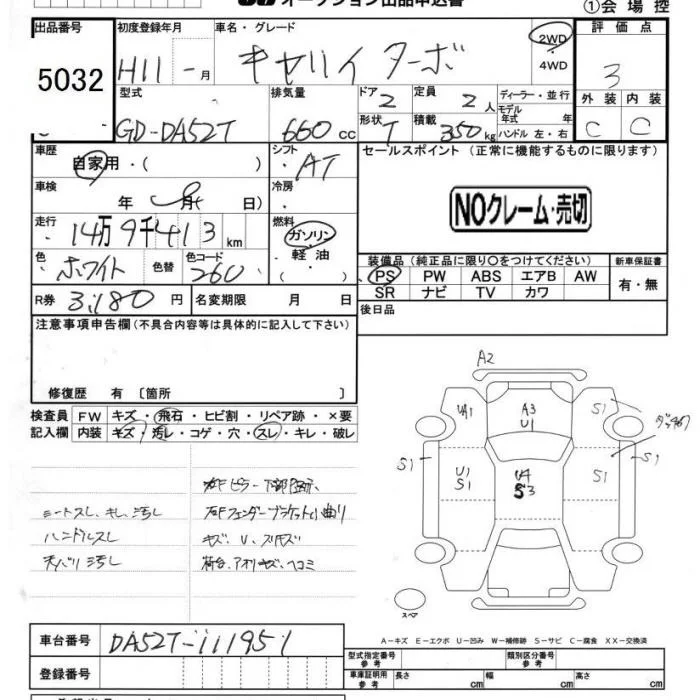 オークション出品申込書
①会場控
出品番号 5032
初度登録年月 H11 - 月
車名・グレード キャリイ ターボ
2WD・4WD
評価点 3
外装 C 内装 C
型式 GD-DA52T
排気量 660 cc
ドア 2
形状 T
定員 2 人
積載 350 kg
ディーラー・並行
モデル年式 年
ハンドル 左・右
車歴 自家用・( )
シフト AT
セールスポイント(正常に機能するものに限ります)
車検 年 月( 日)
冷房
NOクレーム・売切
走行 14万9千413 km
燃料 ガソリン・軽油・( )
色 ホワイト 色替
色コード 26U
装備品(純正品に限り〇をつけてください)
PS PW ABS エアB AW
SR ナビ TV カワ
新車保証書 有・無
R券 3,180 円
名変期限 月 日
後日品
注意事項申告欄(不具合内容等は具体的に記入して下さい)
修復歴 有〔箇所 〕
検査員記入欄
FW キズ・飛石・ヒビ割・リペア跡・×要
内装 キズ・汚レ・コゲ・穴・スレ・キレ・破レ
シートスレ、キレ、汚レ
ハンドルスレ
天バリ汚レ
右Fフェンダーブラケット小曲り
キズ、U、スリキズ
荷台、アオリキズ、ヘコミ
A2
UA1 A3 U1 S1
S1 U1 S1 U4 S3 S1 S1
スペア
A-キズ E-エクボ U-凹み W-補修跡 S-サビ C-腐食 XX-交換済
車台番号 DA52T-111951
登録番号
型式指定番号 参考
類別区分番号 参考
車庫証明用 参考 長さ cm 幅 cm 高さ cm